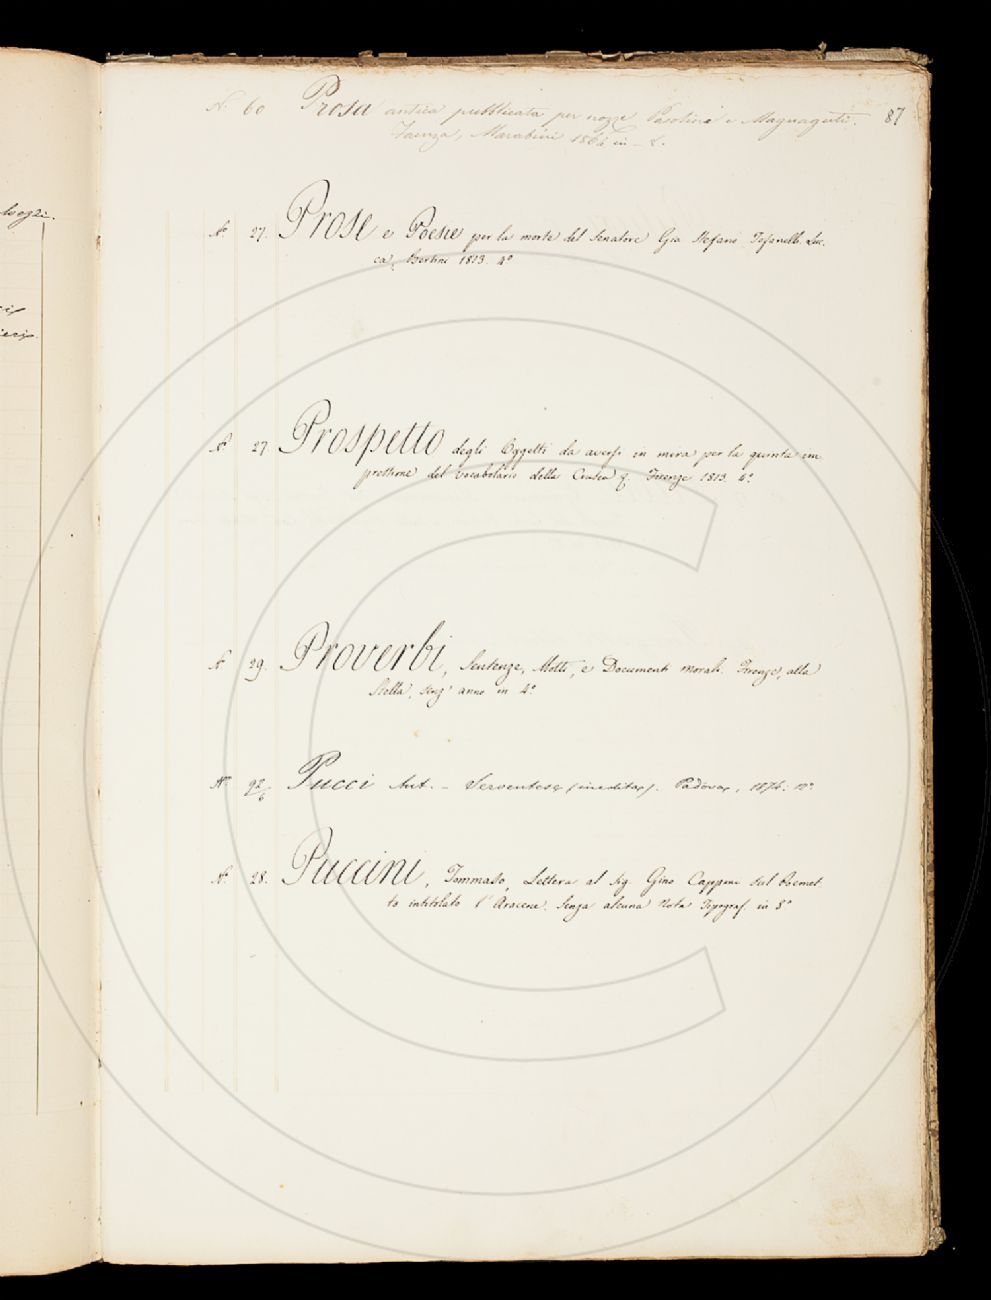 87
N. 60 Prosa antica pubblicata per nozze Pasolini e Magnaguti.
Faenza, Marabini 1864 in - 8.
N. 27. Prose e Poesie per la morte del Senatore Gio. Stefano Tofanelli. Luc.
ca, Bertini 1813. 4º
N. 27 Prospetto degli Oggetti da aversi in mira per la quinta im
pressione del vocabolario della Crusca &. Firenze 1813. 4º.
N. 29. Proverbi, Sentenze, Motti, e Documenti morali. Firenze, alla
Stella, senz' anno in 4º
N. 92/6 Pucci Ant. - Serventese (inedita). Padova, 1874. 12º.
N. 28. Puccini, Tommaso, Lettera al Sig. Gino Capponi sul Poemet
to intitolato l'Aracene. Senza alcuna Nota Tipograf. in 8º